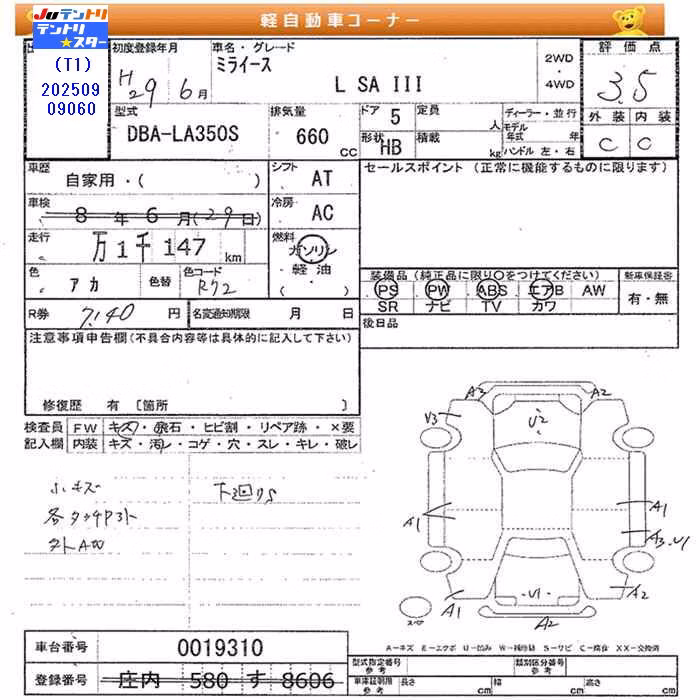 JUテントリ
テントリ★スター
(T1)
202509
09060
軽自動車コーナー
初度登録年月
H29 6月
車名・グレード
ミライース
L SA III
2WD
・
4WD
評価点
3.5
外装 内装
C C
型式
DBA-LA350S
排気量
660 CC
ドア 5
形状 HB
定員 人
積載 kg
ディーラー・並行
モデル年式 年
ハンドル 左・右
車歴
自家用・( )
シフト
AT
セールスポイント (正常に機能するものに限ります)
車検
8年6月(29日)
冷房
AC
走行
万1千147 km
燃料
ガソリン
軽油
( )
色
アカ
色替
色コード
R72
装備品(純正品に限り○をつけてください)
PS PW ABS エアB AW
SR ナビ TV カワ
新車保証書
有・無
R券 7,140 円
名変通知期限 月 日
後日品
注意事項申告欄(不具合内容等は具体的に記入して下さい)
修復歴 有 〔箇所 〕
検査員記入欄
FW キズ・飛石・ヒビ割・リペア跡・×要
内装 キズ・汚レ・コゲ・穴・スレ・キレ・破レ
小キズ
各タッチアト
外AW
下廻りS
A2 A2
V3
U2
A1 A1
A3.U1
U1
A1 A2
A2
スペア
A-キズ E-エクボ U-凹み W-補修跡 S-サビ C-腐食 XX-交換済
車台番号 0019310
登録番号 庄内 580 す 8606
型式指定番号 参考
類別区分番号 参考
車体証明用 参考
長さ cm
幅 cm
高さ cm